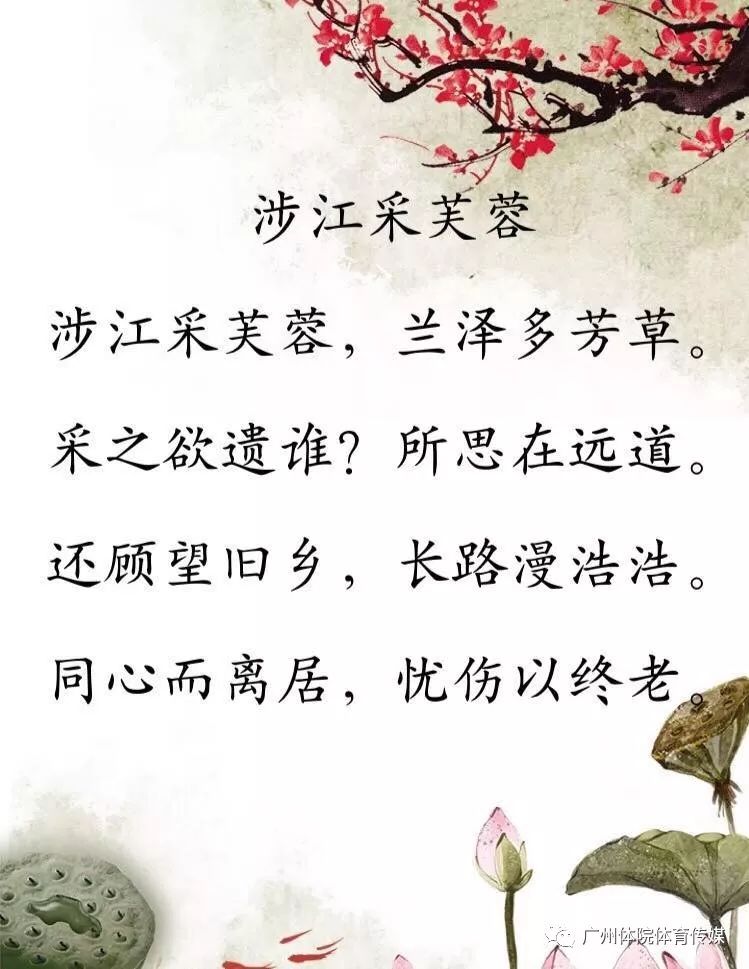 涉江采芙蓉
涉江采芙蓉，兰泽多芳草。
采之欲遗谁？所思在远道。
还顾望旧乡，长路漫浩浩。
同心而离居，忧伤以终老。
广州体院体育传媒